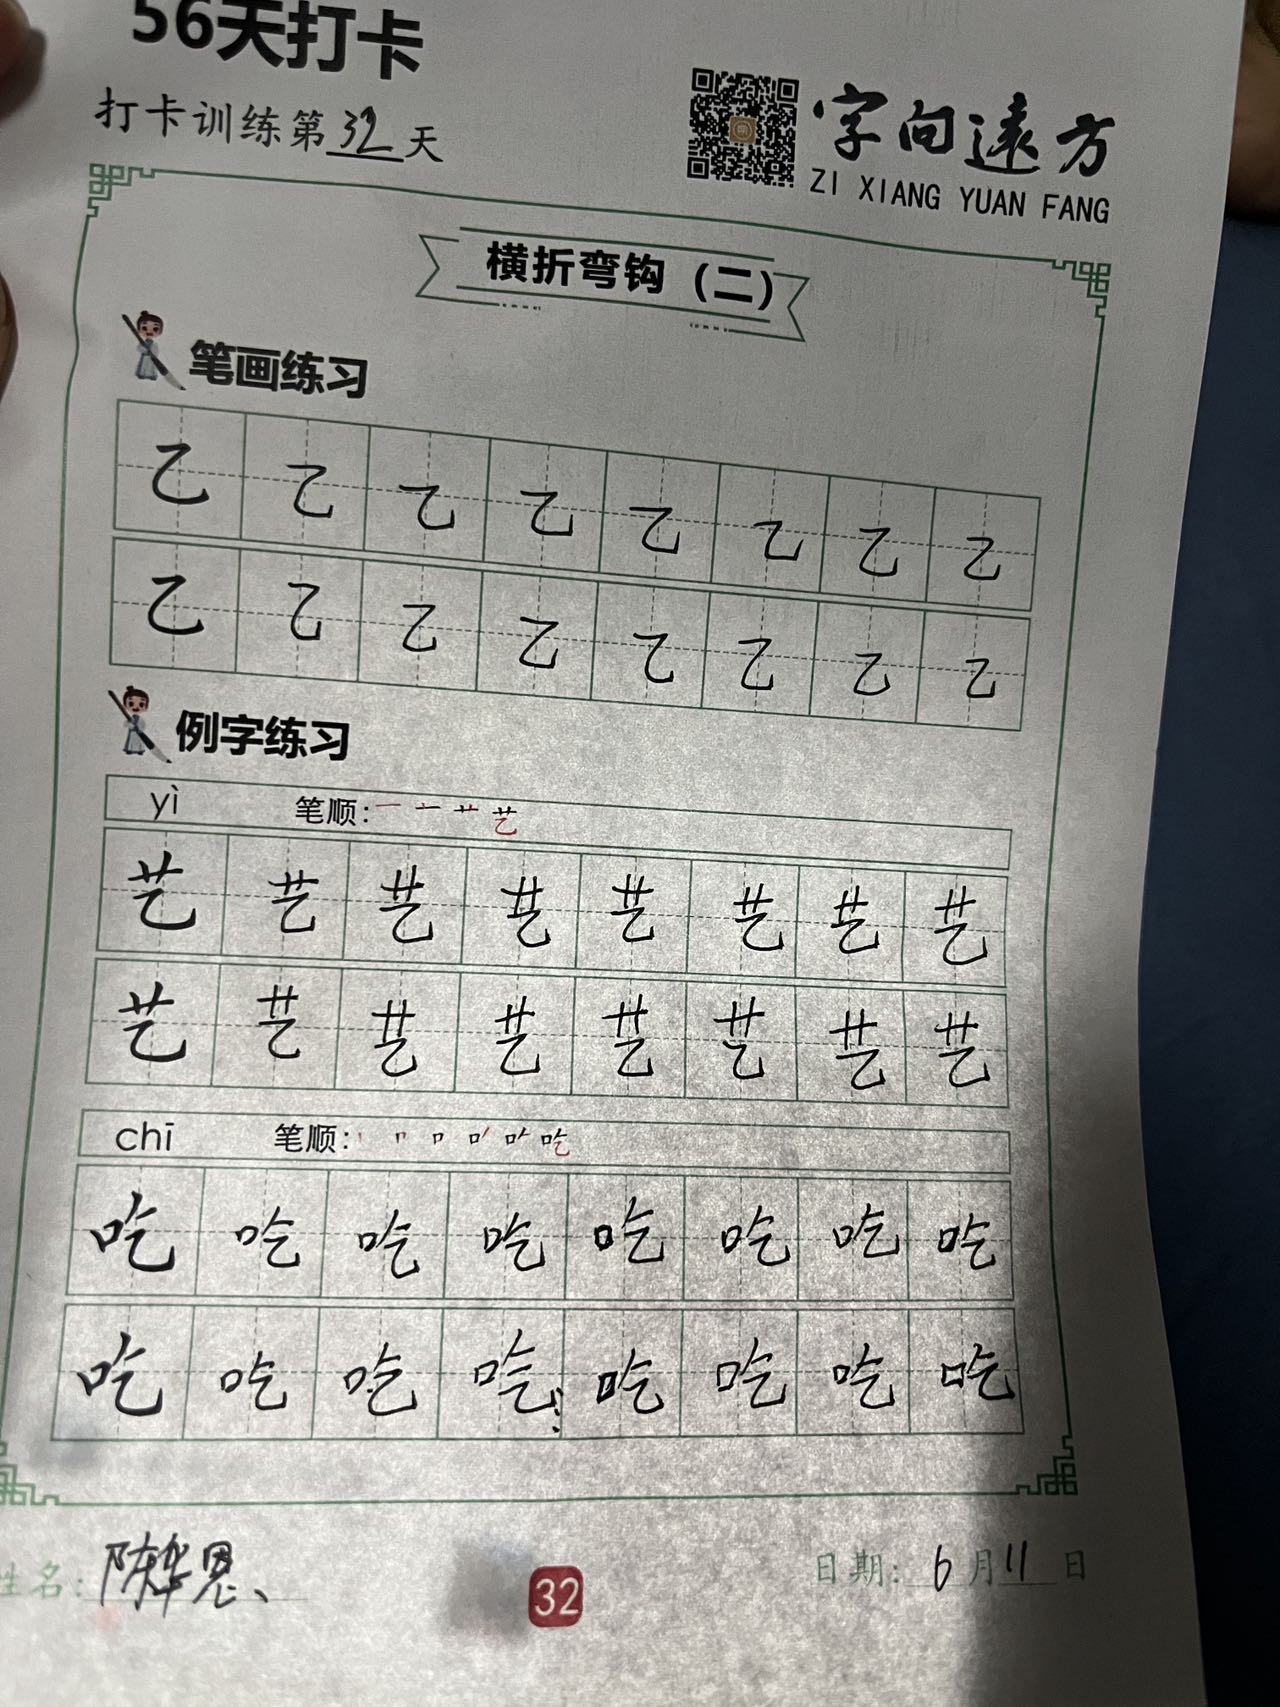 56天打卡
打卡训练第32天
字向遠方
ZI XIANG YUAN FANG
横折弯钩（二）
笔画练习
乙 乙 乙 乙 乙 乙 乙 乙
乙 乙 乙 乙 乙 乙 乙 乙
例字练习
yì 笔顺: 一 艹 艺
艺 艺 艺 艺 艺 艺 艺 艺
艺 艺 艺 艺 艺 艺 艺 艺
chī 笔顺: 吃
吃 吃 吃 吃 吃 吃 吃 吃
吃 吃 吃 吃 吃 吃 吃 吃
姓名: 陈华恩、
32
日期: 6月11日